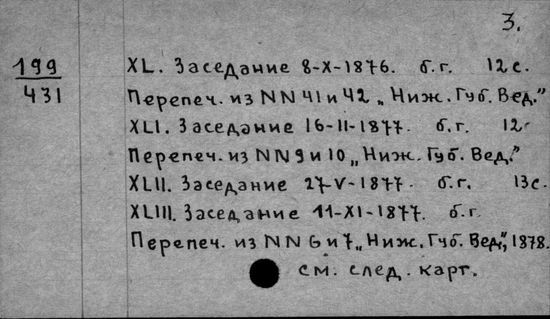 3.
199 XL. Заседание 8-X-1876. б.г. 12с.
431 Перепеч. из NN 41 и 42 „Ниж. Губ. Вед."
XLI. Заседание 16-II-1877. б.г. 12с
Перепеч. из NN 9 и 10 „Ниж. Губ. Вед."
XLII. Заседание 27-V-1877. б.г. 13с.
XLIII. Заседание 11-XI-1877. б.г
Перепеч. из NN 6 и 7 „Ниж. Губ. Вед.", 1878.
см. след. карт.